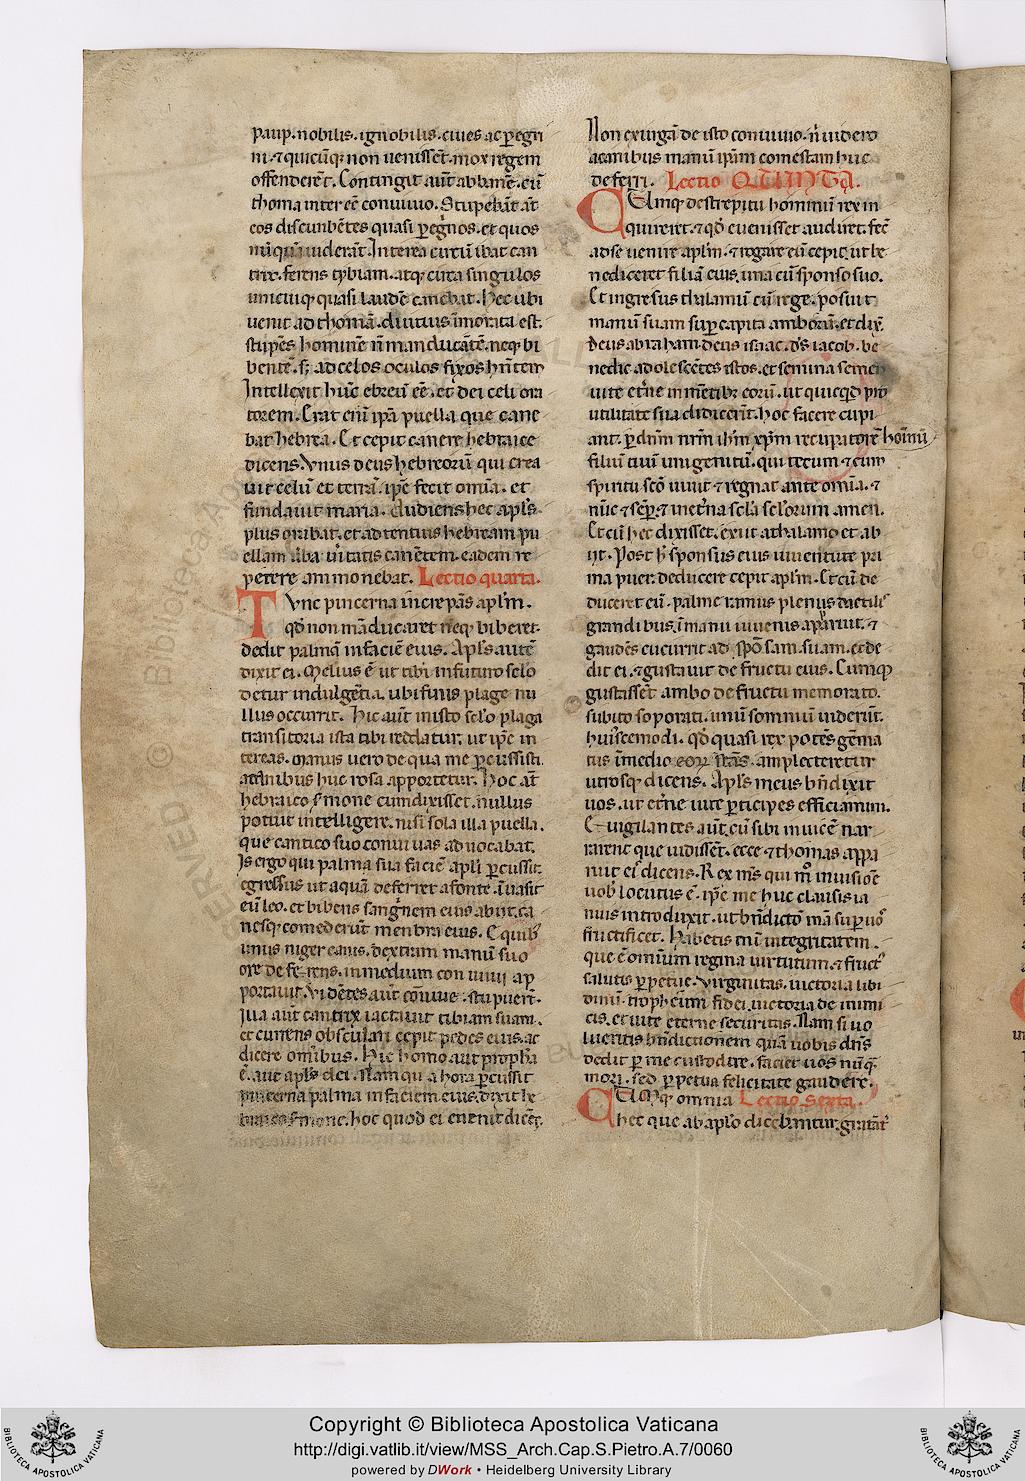 paup̲. nobilis. ignobilis. ciues ac p̲egri
ni. ⁊ quicūq; non uenissēt. mox regem
offenderēt. Contingit aūt abbanē. cū
thoma inter eē conuiuio. Stupebāt āt
eos discunbētes quasi p̲egnos. et quos
nūquā uiderāt. Interea circuibat can
trix. ferens tybiam. atq; circa singulos
unicuiq; quasi laudē canebat. Hec ubi
uenit ad thomā. diutius īmorata est.
stupēs hominē ñ manducātē. neq; bi
bentē. s; ad celos oculos fixos hñtem
Intellexit hūc ebreū eē. et dei celi ora
torem. Erat enī ip̄a puella que cane
bat hebrea. Et cepit canere hebraice
dicens. Vnus deus hebreorū qui crea
uit celū et terrā. ip̄e fecit omīa. et
fundauit maria. Audiens hec ap̄ls.
plus orabat. et ad tentius hebream pu
ellam uba uitatis canētem. eadem re
petere ammonebat. Lectio quarta.
Tvnc pincerna increpās aplm̄.
qđ non māducaret neq; biberet.
dedit palmā in faciē eius. Apl̄s autē
dixit ei. Melius ē ut tibi in futuro scl̄o
detur indulgētia. ubi finis plage nu
llus occurrit. Hic aūt in isto scl̄o plaga
transitoria ista tibi reddatur. ut ip̄e in
tereas. manus uero de qua me p̲cussisti.
acanibus huc rosa apportetur. Hoc āt
hebraico s̄mone cum dixisset. nullus
potuit intelligere. nisi sola illa puella.
que cantico suo conuiuas aduocabat.
Is ergo qui palma sua faciē apl̄i p̲cussit.
egressus ut aquā deferret afonte. īuasit
eū leo. et bibens sanguinem eius abiit. ca
nesq; comederūt menbra eius. E quib;
unus niger canis. dextram manū suo
ore deferens. in medium conuiuii ap
portauit. Vidētes aūt cōuiue. stupuerūt.
Illa aūt cantrix iactauit tibiam suam.
et currens obsculari cepit pedes eius. ac
dicere omīibus. Hic homo aut propha
ē. aut apl̄s dei. Nam qua hora p̲cussit
pincerna palma in faciem eius. dixit he
braico s̄mone. hoc quod ei euenit dicēs.
Non exurgā de isto conuiuio. ñ uidero
acanibus manū ip̄am comestam huc
deferri. Lectio QUINTA.
CUmq; de strepitu hominū rex in
quireret. ⁊ qđ euenisset audiret. fec̄
ad se uenire aplm̄. ⁊ rogare eū cepit. ut be
nediceret filiā eius. una cū sponso suo.
Et ingresus thalamū cū rege. posuit
manū suam sup̲ capita amborū. et dix̄.
Deus abraham. deus isaac. d̄s iacob. be
nedic adolescētes istos. et semina semen
uite et̄ne in mētib; eorū. ut quicqd pro
utilitate sua didicerīt. hoc facere cupi
ant. p̲ dn̄m nr̄m ih̄m xp̄m recuperatorē hominū
filiū tuū unigenitū. qui tecum ⁊ cum
spiritu scō uiuit ⁊ regnat ante omīa. ⁊
nūc ⁊ semp̲. ⁊ inet̄na scl̄a scl̄orum amen.
Et cū hec dixisset. exiit athalamo et ab
iit. Post h̄ sponsus eius uiuentute pri
ma puer. deducere cepit aplm̄. Et cū de
duceret eū. palme ramus plenus dactilis
grandibus. ī manu iuuenis apparuit. ⁊
gaudēs cucurrit ad spōsam suam. et de
dit ei. ⁊ gustauit de fructu eius. Cumq;
gustassēt ambo de fructu memorato.
subito soporati. unū sommū uiderūt.
huiscemodi. qđ quasi rex potēs gēma
tus ī medio eoꝝ stās. amplecteretur
utrosq; dicens. Apl̄s meus bn̄dixit
uos. ut et̄ne uite p̲ticipes efficiamini.
Euigilantes aūt. cū sibi inuicē nar
rarent que uidissēt. ecce ⁊ thomas appa
ruit ei dicens. Rex m̄s qui m̊ in uisiōe
uob̄ locutus ē. ip̄e me huc clausis ia
nuis introduxit. ut bn̄dictō mā sup̲ uos
fructificet. Habetis enī integritatem.
que ē omīum regina uirtutum. ⁊ fruct̄
salutis p̲petue. Virginitas. uictoria libi
dinū. trophēum fidei. uictoria de inimi
cis. et uite eterne securitas. Nam si uo
lueritis bn̄dictionem quā uobis dn̄s
dedit p̲ me custodire. faciet uos nūq̄
mori. sed p̲petua felicitate gaudere.
CUmq; omnia Lectio Sexta.
hec que ab apl̄o dicebantur. grātāt̄
Copyright © Biblioteca Apostolica Vaticana
http://digi.vatlib.it/view/MSS_Arch.Cap.S.Pietro.A.7/0060
powered by DWork • Heidelberg University Library
BIBLIOTECA APOSTOLICA VATICANA
BIBLIOTECA APOSTOLICA VATICANA